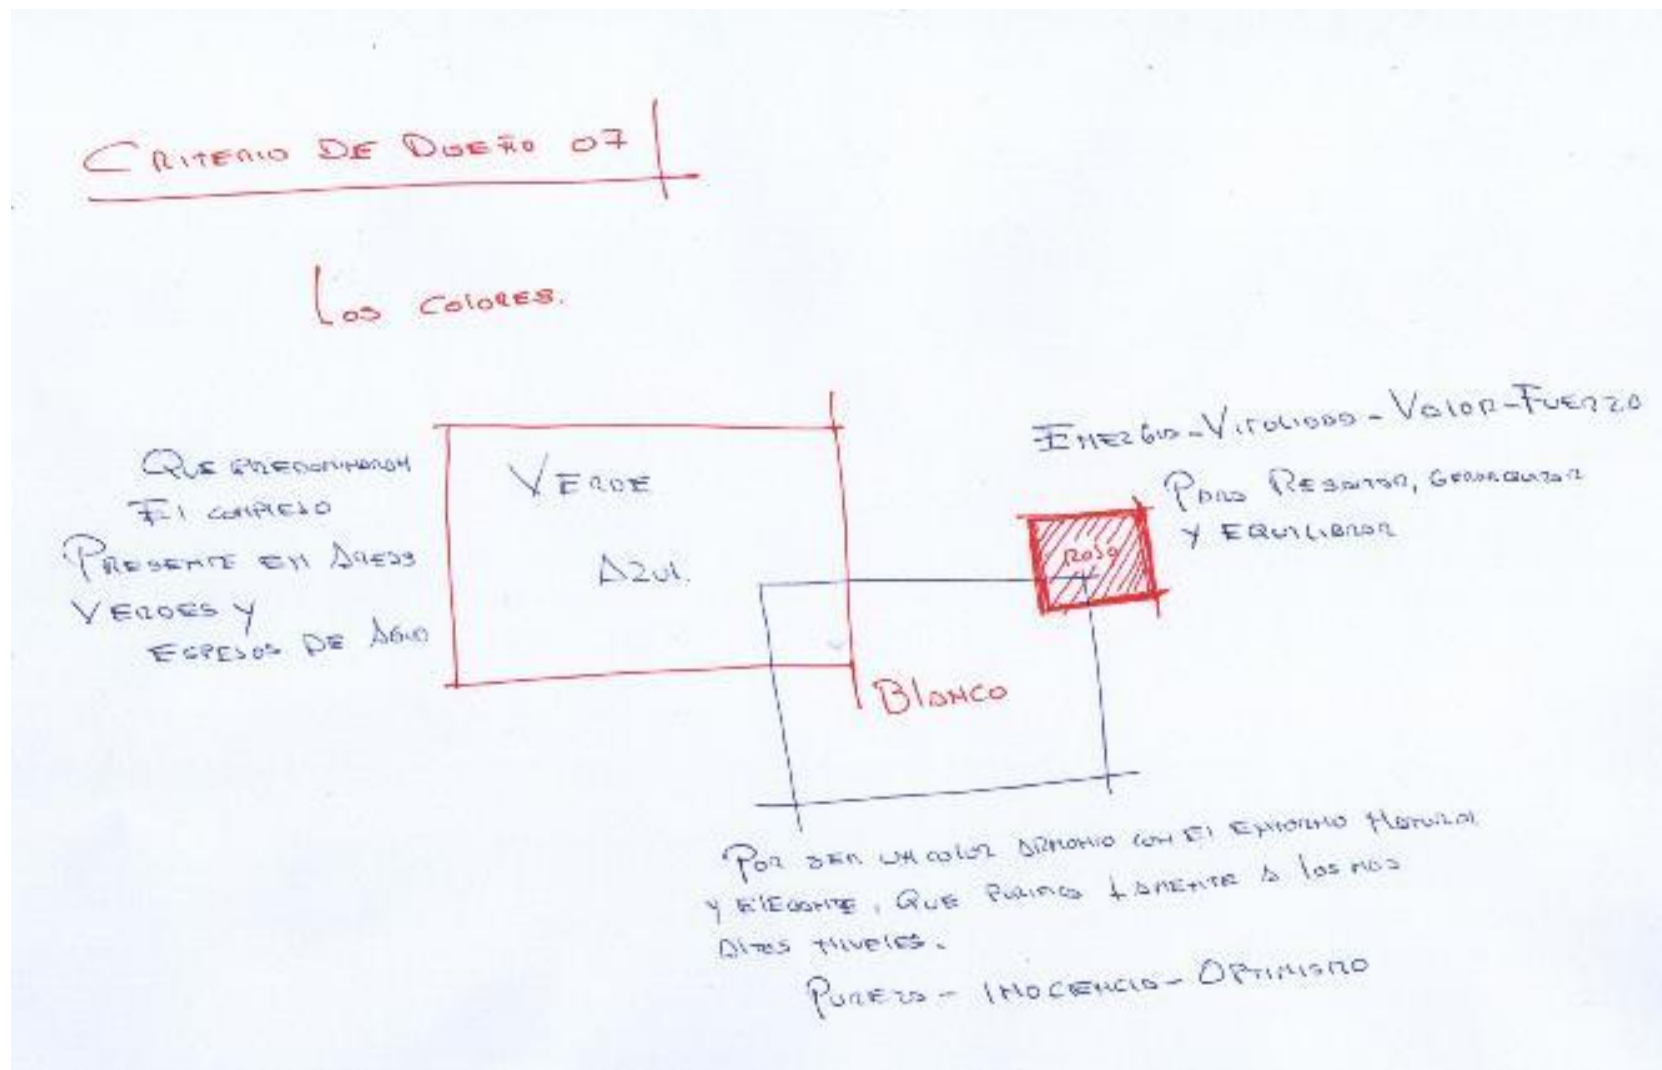 CRITERIO DE DISEÑO 07
Los COLORES.
QUE PREDOMINARAN
El COMPLEJO
PRESENTE EN AREAS
VERDES Y
ESPEJOS DE AGUA
VERDE
AZUL.
BLANCO
ENERGIA - VITALIDAD - VALOR - FUERZA
PARA RESALTAR, GERARQUIZAR
Y EQUILIBRAR
ROJO
POR SER UN COLOR ARMONIO CON El ENTORNO NATURAL
Y ElEGANTE, QUE PURIFICA LA MENTE A los MAS
AlTOS NIVELES.
PUREZA - INOCENCIA - OPTIMISMO